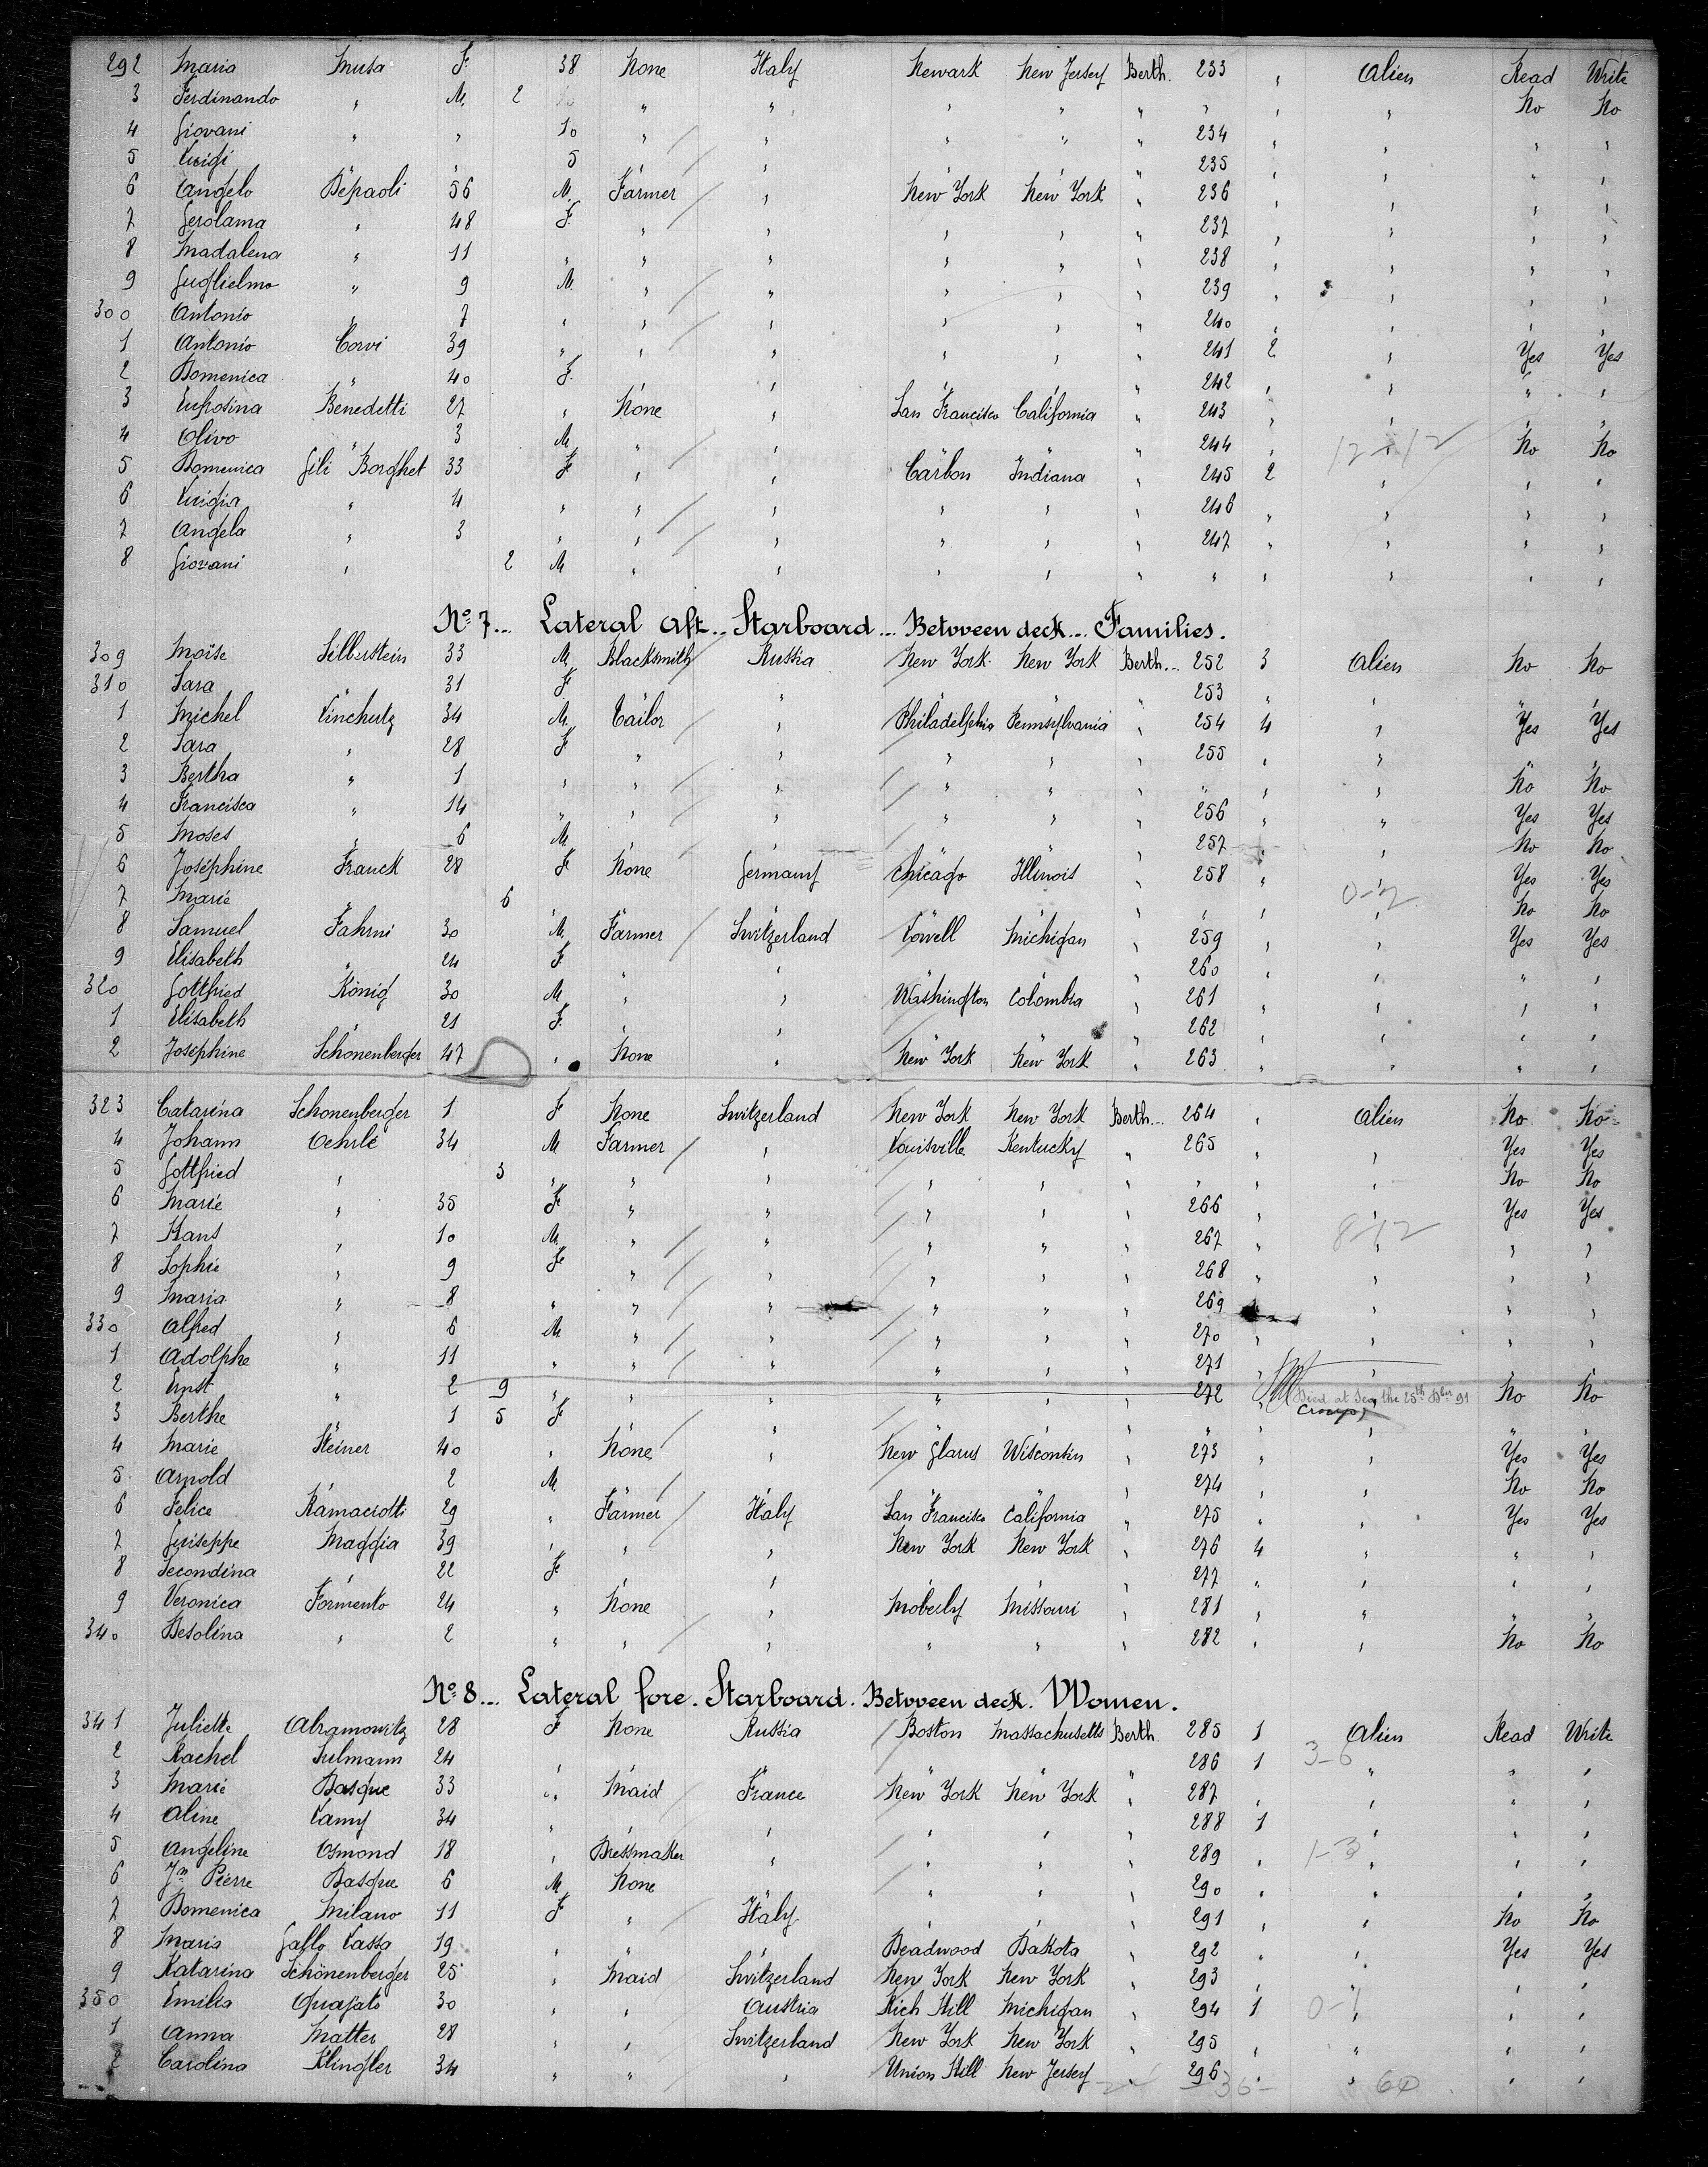 292 Maria Musa F 38 None Italy Newark New Jersey Berth. 233 " Alien Read Write
3 Ferdinando " M. 2 " " " " " " " " No No
4 Giovani " " 10 " " " " " 234 " " " "
5 Luigi " " 5 " " " " " 235 " " " "
6 Angelo Dépaoli 56 M. Farmer " New York New York " 236 " " " "
7 Gerolama " 48 F. " " " " " 237 " " " "
8 Madalena " 11 " " " " " " 238 " " " "
9 Guglielmo " 9 M. " " " " " 239 " " " "
300 Antonio " 7 " " " " " " 240 " " " "
1 Antonio Corvi 39 " " " " " " 241 2 " Yes Yes
2 Domenica " 40 F. " " " " " 242 " " " "
3 Eufrosina Benedetti 27 " None " San Francisco California " 243 " " " "
4 Olivo " 3 M " " " " " 244 " " No No
5 Domenica Gili Borghet 33 F " " Carbon Indiana " 245 2 " " "
6 Luigia " 4 " " " " " " 246 " " " "
7 Angela " 3 " " " " " " 247 " " " "
8 Giovani " 2 M " " " " " " " " " "
No 7... Lateral Aft... Starboard... Between deck... Families.
309 Moïse Silberstein 33 M Blacksmith Russia New York New York Berth... 252 3 Alien No No
310 Sara " 31 F " " " " " 253 " " " "
1 Michel Linchutz 34 M. Tailor " Philadelphia Pennsylvania " 254 4 " Yes Yes
2 Sara " 28 F " " " " " 255 " " " "
3 Bertha " 1 " " " " " " " " " No No
4 Francisca " 14 " " " " " " 256 " " Yes Yes
5 Moses " 6 M " " " " " 257 " " No No
6 Joséphine Franck 28 F None Germany Chicago Illinois " 258 " " Yes Yes
7 Marie " 6 " " " " " " " " " No No
8 Samuel Fahrni 30 M. Farmer Switzerland Lowell Michigan " 259 " " Yes Yes
9 Elisabeth " 24 F. " " " " " 260 " " " "
320 Gottfried König 30 M " " Washington Colombia " 261 " " " "
1 Elisabeth " 21 F. " " " " " 262 " " " "
2 Joséphine Schönenberger 47 " None " New York New York " 263 " " " "
323 Catarina Schonenberger 1 F None Switzerland New York New York Berth... 264 " Alien No No
4 Johann Oehrlé 34 M Farmer " Louisville Kentucky " 265 " " Yes Yes
5 Gottfried " 3 " " " " " " " " " No No
6 Marie " 35 F " " " " " 266 " " Yes Yes
7 Hans " 10 M. " " " " " 267 " " " "
8 Sophie " 9 F " " " " " 268 " " " "
9 Maria " 8 " " " " " " 269 " " " "
330 Alfred " 6 M " " " " " 270 " " " "
1 Adolphe " 11 " " " " " " 271 " " " "
2 Ernst " 2 9 " " " " " " 272 " Died at Sea, the 25th 91 No No
Croup
3 Berthe " 1 5 F " " " " " " " " " "
4 Marie Steiner 40 " None " New Glarus Wisconsin " 273 " " Yes Yes
5 Arnold " 2 M " " " " " 274 " " No No
6 Felice Ramaciotti 29 " Farmer Italy San Francisco California " 275 " " Yes Yes
7 Guiseppe Maggia 39 " " " New York New York " 276 4 " " "
8 Secondina " 22 F " " " " " 277 " " " "
9 Veronica Formento 24 " None " Moberly Missouri " 281 " " " "
340 Besolina " 2 " " " " " " 282 " " No No
No 8... Lateral fore. Starboard. Between deck. Women.
341 Juliette Abramowitz 28 F None Russia Boston Massachusetts Berth. 285 1 Alien Read Write
2 Rachel Sulmann 24 " " " " " " 286 1 3-6 " " "
3 Marie Basque 33 " Maid France New York New York " 287 " " " "
4 Aline Lamy 34 " " " " " " 288 1 " " "
5 Angeline Osmond 18 " Dressmaker " " " " 289 " 1-3 " " "
6 Jn Pierre Basque 6 M None " " " " 290 " " " "
7 Domenica Milano 11 F " Italy " " " 291 " " No No
8 Maria Gallo Cassa 19 " " " Deadwood Dakota " 292 " " Yes Yes
9 Katarina Schönenberger 25 " Maid Switzerland New York New York " 293 " " " "
350 Emilia Quajato 30 " " Austria Rich Hill Michigan " 294 1 0-1 " " "
1 Anna Matter 28 " " Switzerland New York New York " 295 " " " "
2 Carolina Klingler 34 " " " Union Hill New Jersey " 296 " " " "
60